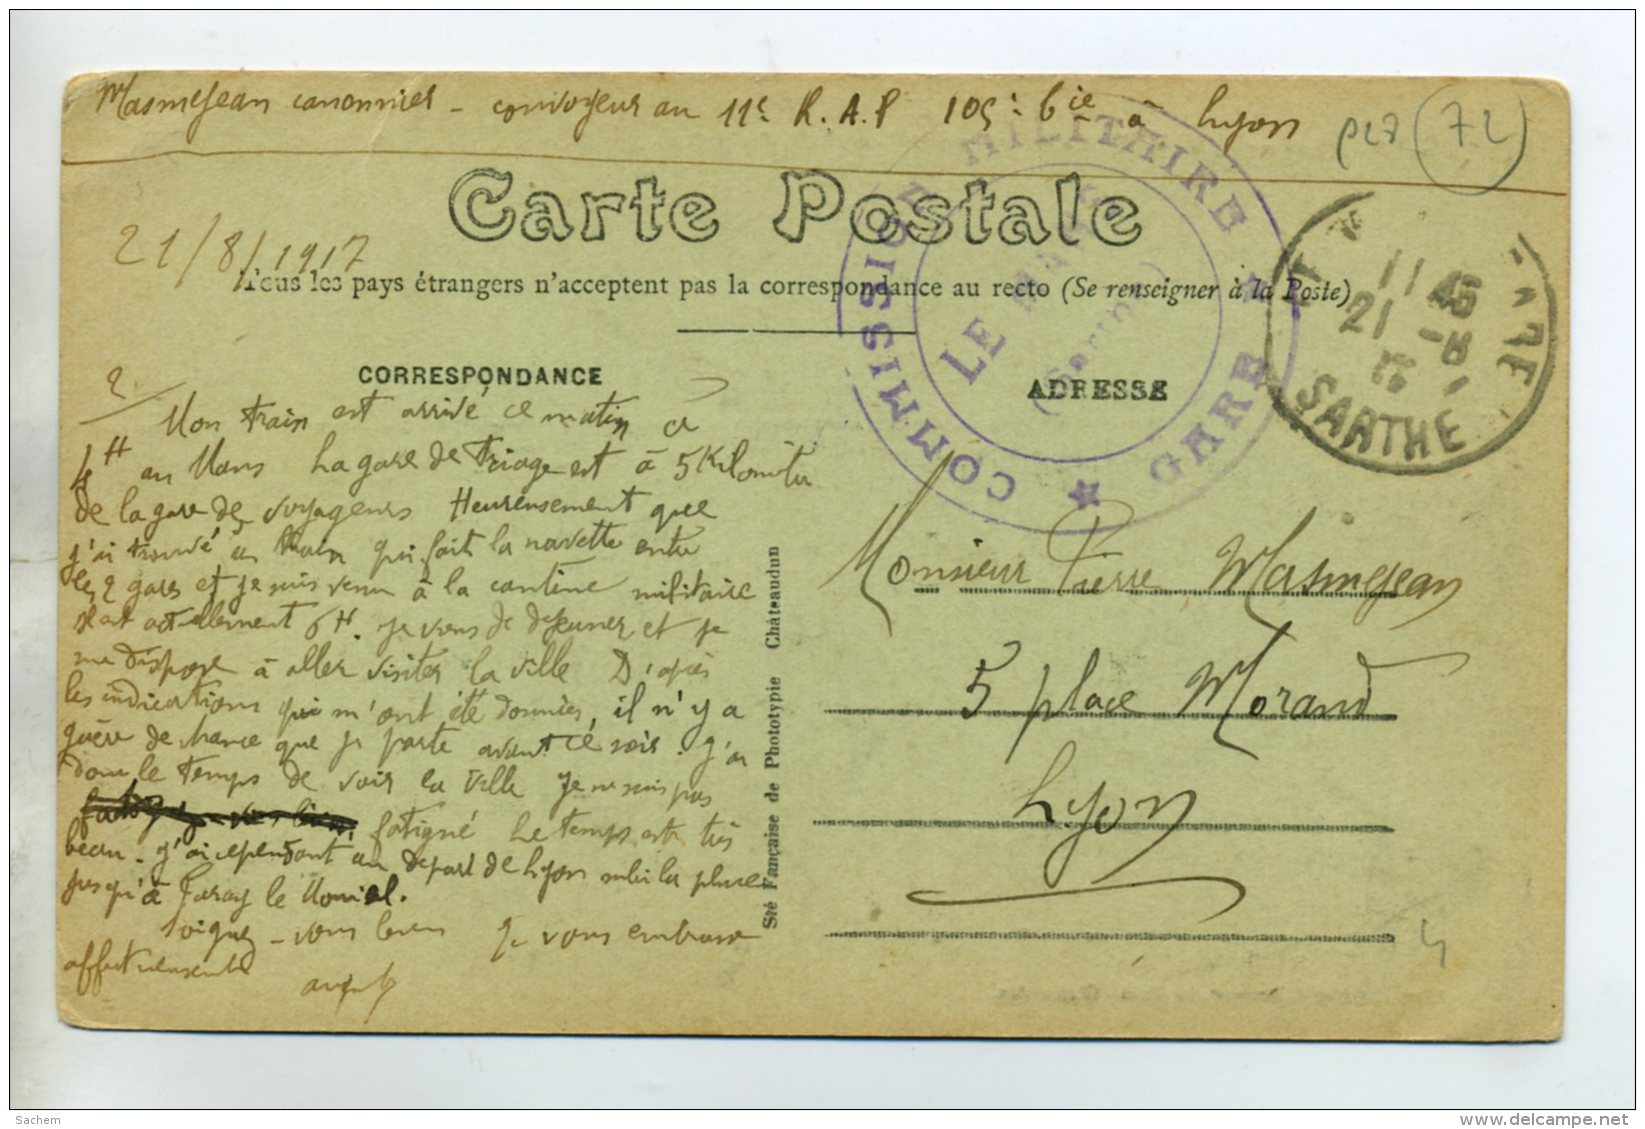 Masmejean canonnier - convoyeur au 11e R.A.P 105e bie à Lyon
(72)
Carte Postale
21/8/1917
Tous les pays étrangers n'acceptent pas la correspondance au recto (Se renseigner à la Poste)
COMMISSION MILITAIRE GARE
LE MANS
(Sarthe)
11 45
21 -8
GARE
SARTHE
CORRESPONDANCE
ADRESSE
2
Mon train est arrivé ce matin à
4H au Mans La gare de Triage est à 5 Kilomètr
de la gare de voyageurs Heureusement que
j'ai trouvé un train qui fait la navette entre
les 2 gares et je suis venu à la cantine militaire
Il est actuellement 6H. Je viens de déjeuner et je
me dispose à aller visiter la ville D'après
les indications qui m'ont été données, il n'y a
guère de chance que je parte avant ce soir. J'ai
donc le temps de voir la ville Je ne suis pas
fatigué Le temps est très
beau - J'ai cependant au départ de Lyon subi la pluie
jusqu'à Paray le Monial.
Soignez-vous bien Je vous embrasse
affectueusement
Monsieur Pierre Masmejean
5 place Morand
Lyon
Sté Française de Phototypie Châteaudun
Sachem
www.delcampe.net